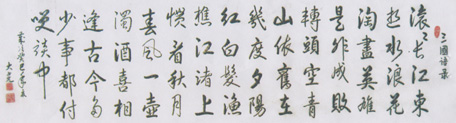 滚〻長江東
逝水浪花
淘盡英雄
是非成敗
轉頭空青
山依舊在
幾度夕陽
紅白髮漁
樵江渚上
惯看秋月
春風一壺
濁酒喜相
逢古今多
少事都付
笑談中